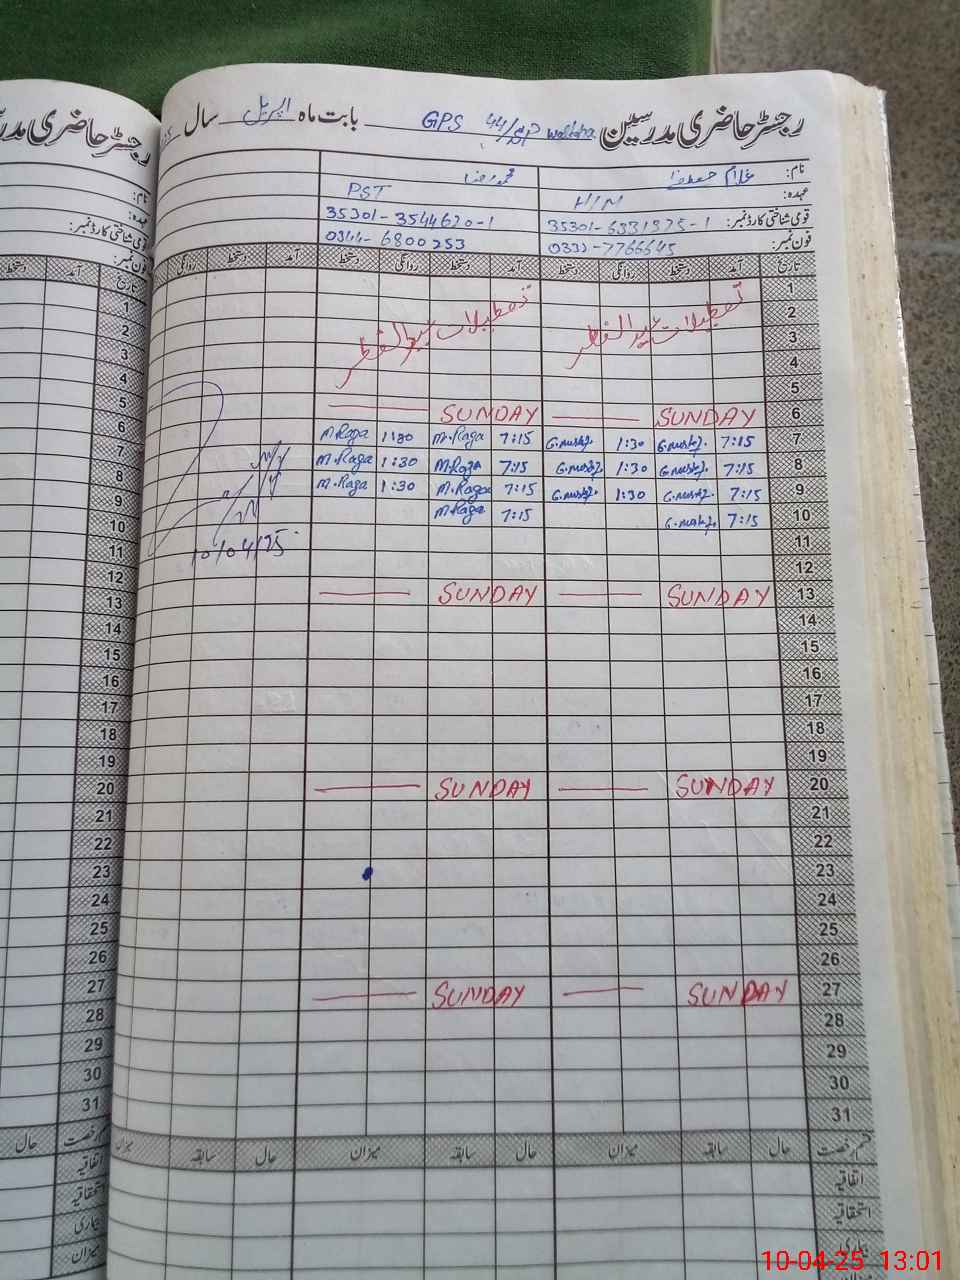 رجسٹر حاضری مدرسین GPS 44/ بابت ماہ اپریل سال
نام: غلام مصطفیٰ محمد رضا
عہدہ: H/M PST
قومی شناختی کارڈ نمبر: 35301-6331875-1 35301-3544670-1
فون نمبر: 6800253
تاریخ آمد دستخط روانگی دستخط آمد دستخط روانگی دستخط آمد دستخط روانگی
1
2 تعطیلات عید الفطر تعطیلات عید الفطر
3
4
5
6 SUNDAY SUNDAY
7 7:15 G.mustf. 1:30 G.mustf. 7:15 M.Raza 1:30 M.Raza
8 7:15 G.mustf. 1:30 G.mustf. 7:15 M.Raza 1:30 M.Raza
9 7:15 G.mustf. 1:30 G.mustf. 7:15 M.Raza 1:30 M.Raza
10 7:15 G.mustf. 7:15 M.Raza
10/04/25
11
12
13 SUNDAY SUNDAY
14
15
16
17
18
19
20 SUNDAY SUNDAY
21
22
23
24
25
26
27 SUNDAY SUNDAY
28
29
30
31
قسم رخصت حال سابقہ میزان حال سابقہ میزان حال سابقہ میزان
اتفاقیہ
استحقاقیہ
بیماری
رجسٹر حاضری مدر
نام:
عہدہ:
قومی شناختی کارڈ نمبر:
فون نمبر:
تاریخ آمد دستخط
1
2
3
4
5
6
7
8
9
10
11
12
13
14
15
16
17
18
19
20
21
22
23
24
25
26
27
28
29
30
31
قسم رخصت حال
اتفاقیہ
استحقاقیہ
بیماری
میزان
10-04-25 13:01